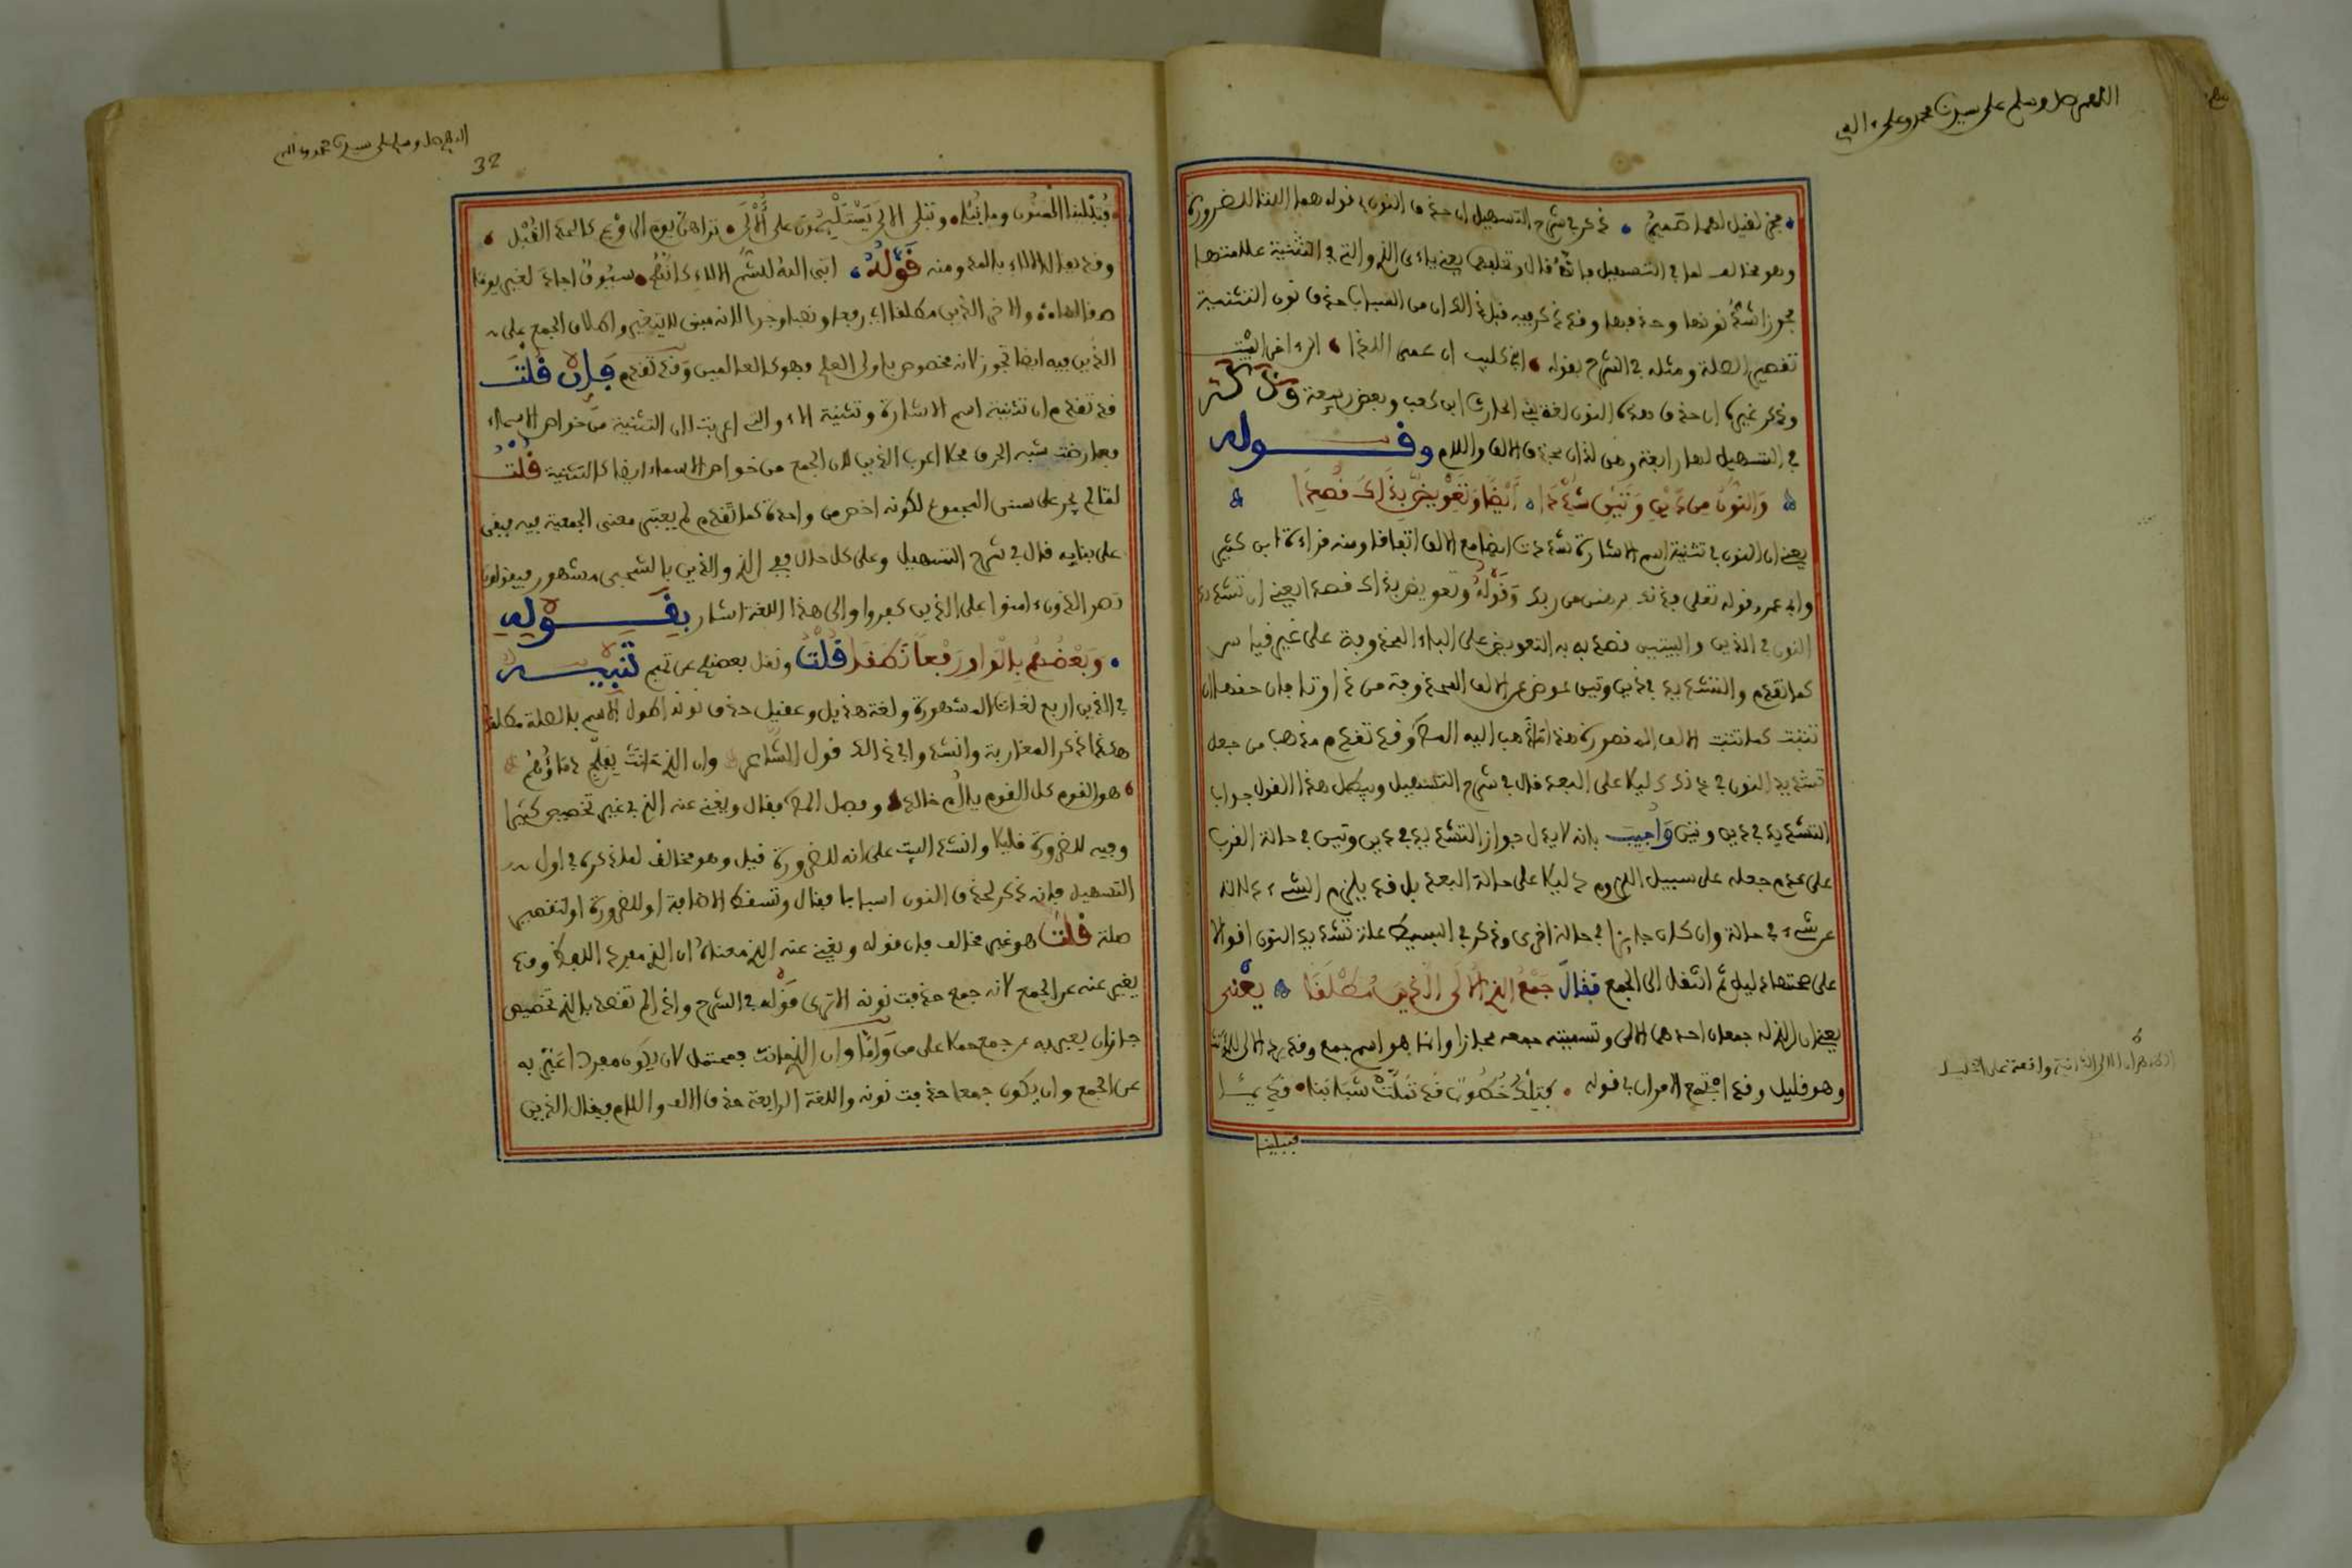 اللهم صل وسلم على سيدنا محمد وعلى ءاله
فخر لقيل لهما صميم • ذكر في شرح التسهيل ان حذف النون في قوله هما اللتا للضرورة
وهو مخالف لما في التسهيل فانه قال يعني ياء الذي والتي في التثنية علامتها
مجوزا شد نونها وحذفها وقد ذكر فيه قبل ذلك ان من اسباب حذف نون التثنية
تقصير الصلة ومثله في الشرح بقوله • ابني كليب ان عمي اللذا • اخر البيت
وذكر غيره ان حذف هذه النون لغة بني الحارث ابن كعب وبعض ربيعة وذكر
في التسهيل لها رابعة وهي لذان بحذف الالف واللام وقوله
والنون من ذين وتين شددا • ايضا وتعويض بذاك قصدا
يعني ان النون في تثنية اسم الاشارة شددت ايضا مع الالف اتفاقا ومنه قراءة ابن كثير
وابي عمرو قوله تعلى فذانك برهنن من ربك وقوله وتعويض بذاك قصدا يعني ان تشديد
النون في الذين والتين قصد به التعويض على الياء المحذوفة على غير قياس
كما تقدم والتشديد في ذين وتين عوض عن الالف المحذوفة من ذا وتا فان حقها ان
تثبت كما تثبت الالف المقصورة هذا ما ذهب اليه المص وقد تقدم مذهب من جعل
تشديد النون في ذلك دليلا على البعد قال في شرح التسهيل ويبطل هذا القول جواز
التشديد في ذين وتين واجيب بانه لا يدل جواز التشديد في ذين وتين في حالة القرب
على عدم جعله على سبيل اللزوم دليلا على حالة البعد بل قد يلزم الشيء دلالة
عن شيء في حالة وان كان جايزا في حالة اخرى وذكر في البسيط علة تشديد النون اقوالا
على صحتها دليل ثم انتقل الى الجمع فقال جمع الذي الالى الذين مطلقا يعني
يعني ان الذي له جمعان احدهما الالى وتسميته جمعه مجازا وانما هو اسم جمع وقد يرد الالى للمؤنث
وهو قليل وقد اجتمع الامران في قوله • فتلك خطوب قد تملت شبابنا • قديما
فتبلينا
32
اللهم صل وسلم على سيدنا محمد وعلى ءاله
فتبلينا المنون وما نبلى • وتبلى الالى يستلئمون على الالى • تراهن يوم الروع كالحدا القبل •
وقد يقال الالاء بالمد ومنه قوله • ابى الله للشم الالاء كانهم • سيوف اجاد القين يوما
صقالها • والاخر الذين مطلقا اي رفعا ونصبا وجرا لانه مبني لا يتغير واطلاق الجمع على
الذين فيه ايضا تجوز لانه مخصوص باولى العلم فهو كالعالمين وقد تقدم فان قلت
قد تقدم ان تثنية اسم الاشارة وتثنية الذي والتي اعربت لان التثنية من خواص الاسماء
فعارضت شبه الحرف فهلا اعرب الذين لان الجمع من خواص الاسماء ايضا كالتثنية قلت
لما لم يجر على سنن المجموع لكونه اخص من واحده كما تقدم لم يعتبر معنى الجمعية فيه فبقي
على بنايه قال في شرح التسهيل وعلى كل حال ففي الذي والذين بالشجي مشهور فيقولون
نصر الذون ءامنوا على الذين كفروا والى هذه اللغة اشار بقوله
• وبعضهم بالواو رفعا نطقا قلت ونقل بعضهم عن تميم تنبيه
في الذين اربع لغات المشهورة ولغة هذيل وعقيل حذف نونه لطول الاسم بالصلة مطلقا
هكذا ذكر المغاربة وانشدوا في ذلك قول الشاعر وان الذي حانت بفلج دماؤهم
• هم القوم كل القوم يا ام خالد • وفصل المص فقال ويغني عنه الذي في غير تخصيص كثيرا
وفيه للضرورة قليلا وانشد البيت على انه للضرورة قيل وهو مخالف لما ذكره في اول
التسهيل فانه ذكر لحذف النون اسبابا فقال وتسقط للاضافة او للضرورة او لتقصير
صلة قلت هو غير مخالف فان قوله ويغني عنه الذي معناه ان الذي مفرد اللفظ وقد
يغني عنه عن الجمع لانه جمع حذفت نونه الا ترى قوله في الشرح واذا لم تقصد بالذي تخصيص
جاز ان يعبر به عن جمع حملا على من واما وان الذي حانت فمحتمل لان يكون مفردا عبر به
عن الجمع وان يكون جمعا حذفت نونه واللغة الرابعة حذف الالف واللام فيقال الذين